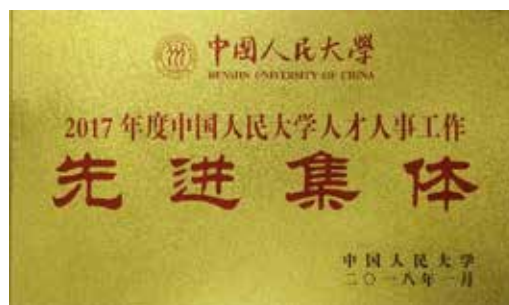 中国人民大學
RENMIN UNIVERSITY OF CHINA
2017年度中国人民大学人才人事工作
先进集体
中国人民大学
二〇一八年一月